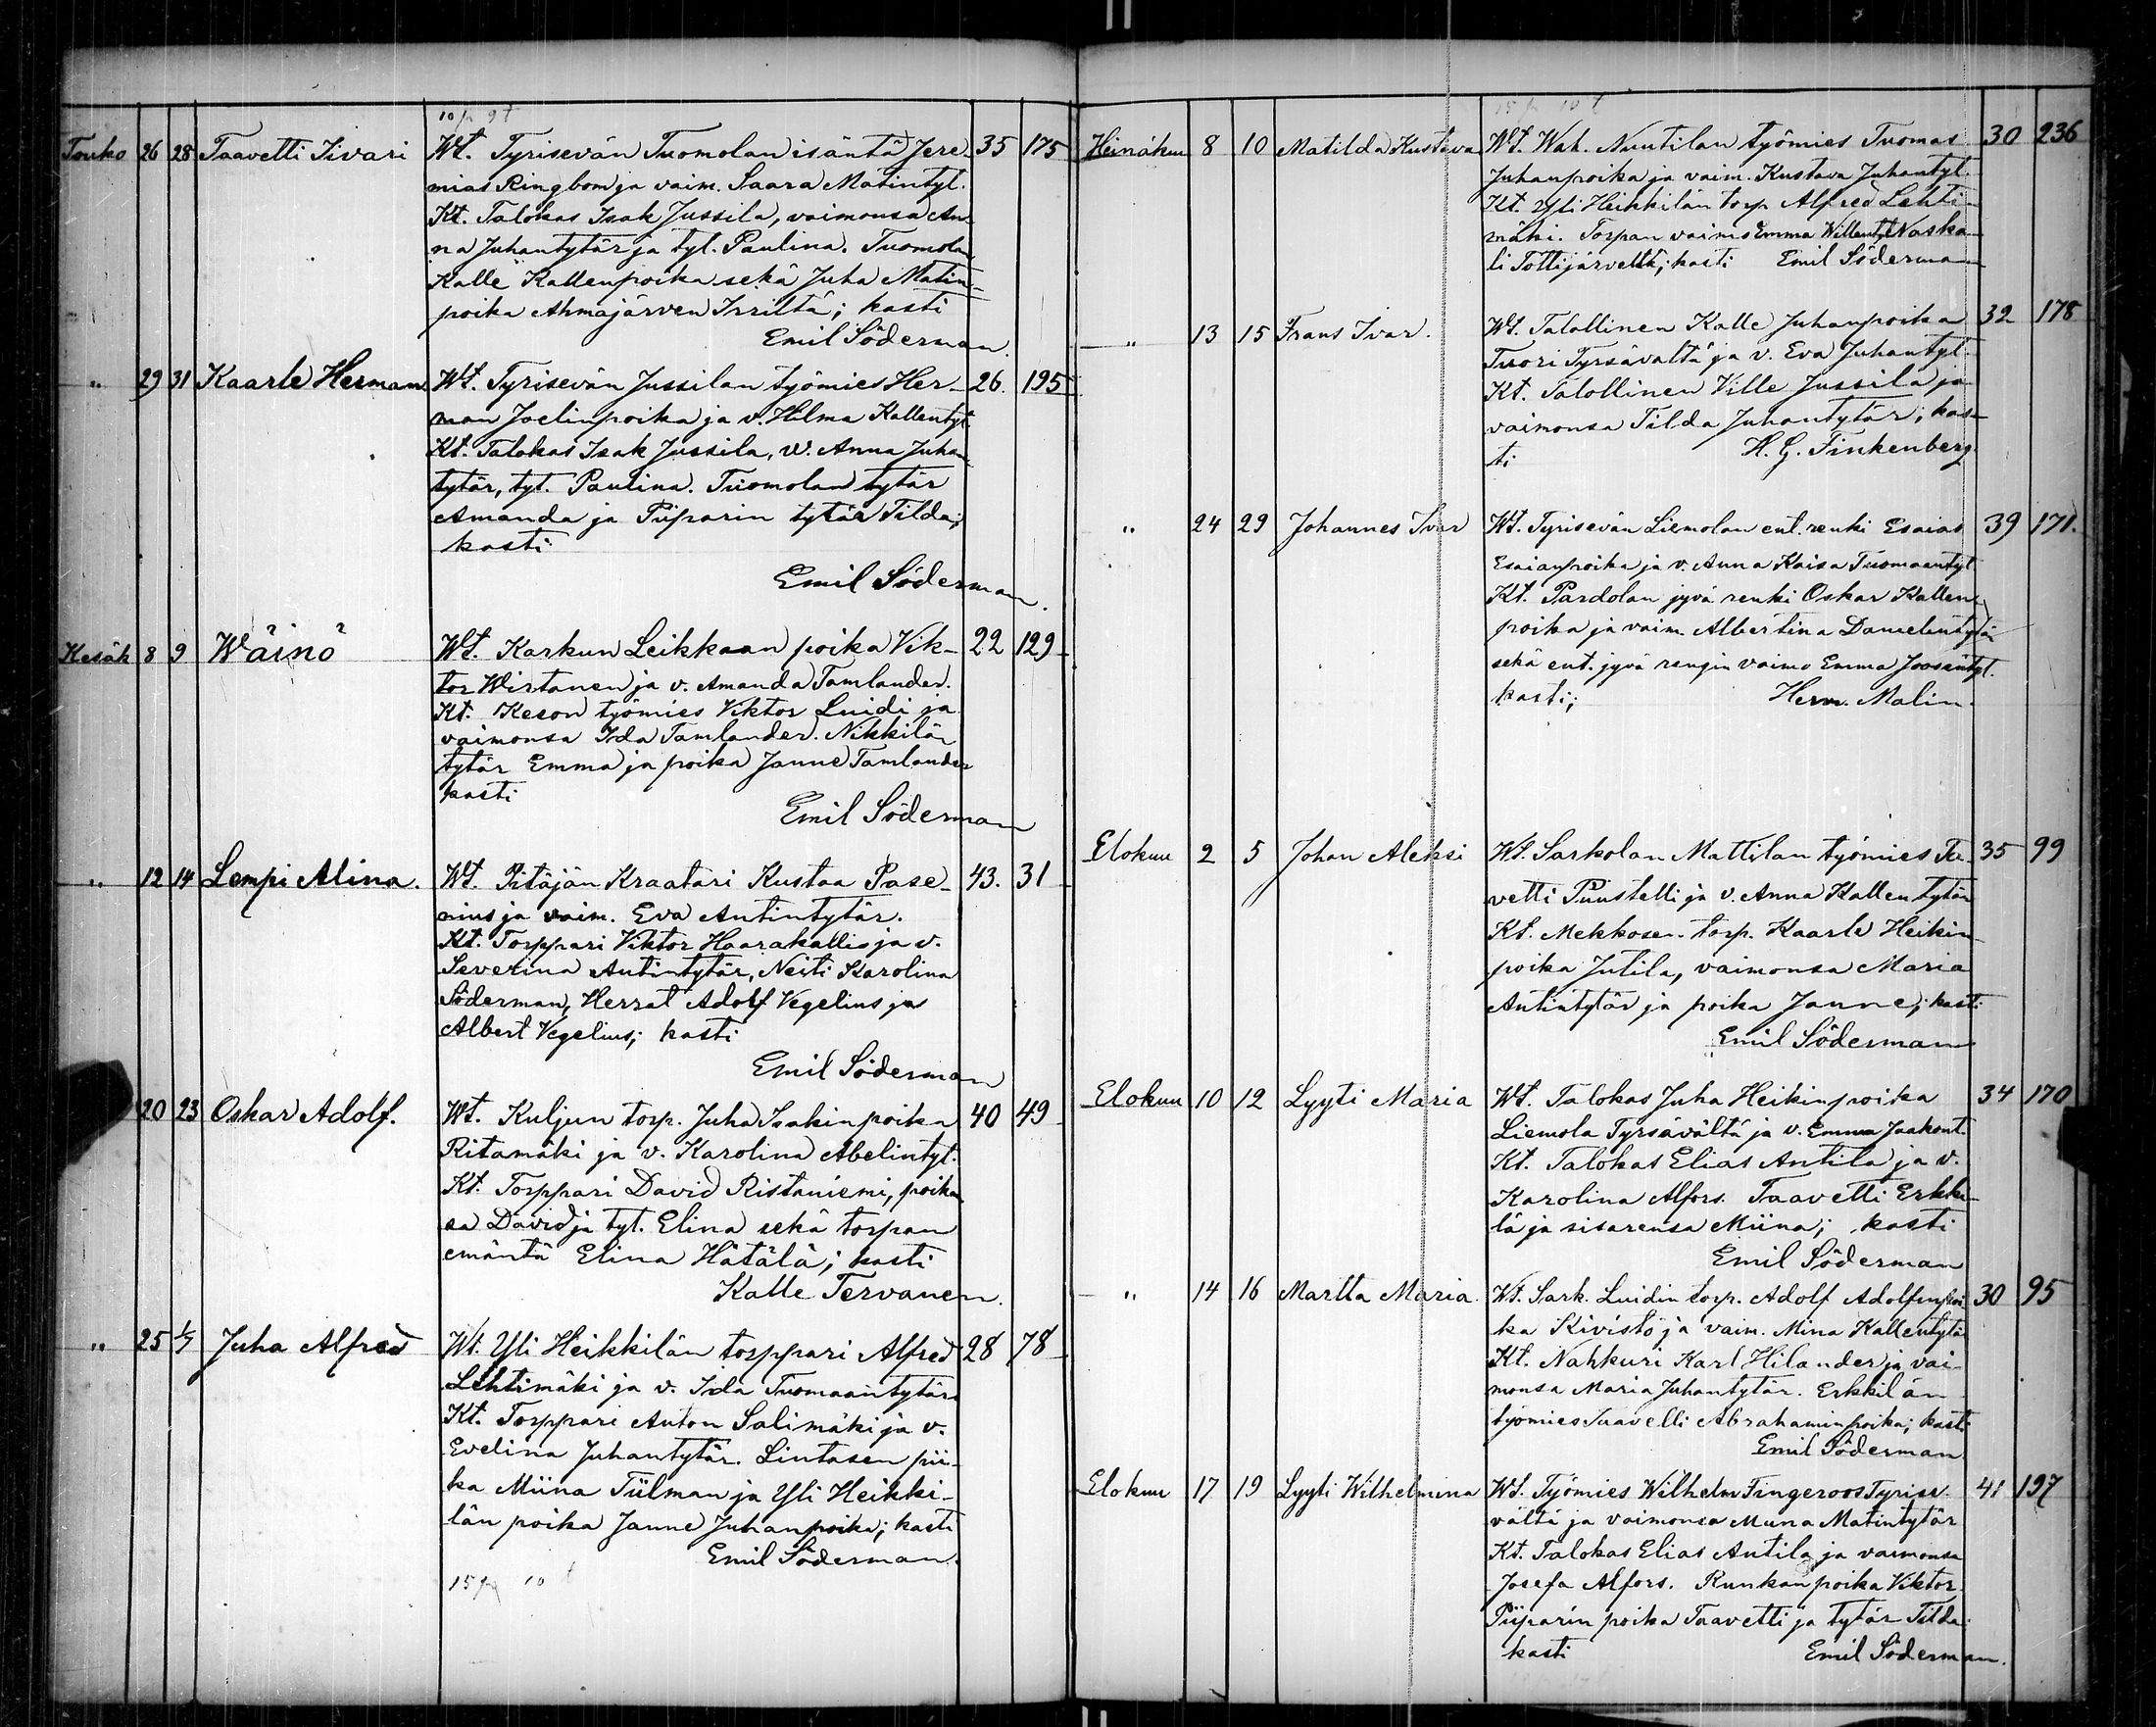 10 p 9 t
Touko 26 28 Taavetti Iivari Wt. Tyrisevän Tuomolan isäntä Jere- 35 175
mias Ringbom ja vaim. Saara Matintyt.
Kt. Talokas Isak Jussila, vaimonsa An-
na Juhantytär ja tyt. Paulina. Tuomolan
Kalle Kallenpoika sekä Juha Matin-
poika Ahmajärven Irriltä; kasti
Emil Söderman.
" 29 31 Kaarle Herman Wt. Tyrisevän Jussilan työmies Her- 26. 195
man Joelinpoika ja v. Hilma Kallentyt.
Kt. Talokas Isak Jussila, w. Anna Juhan
tytär, tyt. Paulina. Tuomolan tytär
Amanda ja Piiparin tytär Tilda;
kasti
Emil Söderman.
Kesäk 8 9 Wäinö Wt. Karkun Leikkaan poika Vik- 22 129
tor Wirtanen ja v. Amanda Tamlander.
Kt. Keson työmies Viktor Luidi ja
vaimonsa Ida Tamlander. Nikkilän
tytär Emma ja poika Janne Tamlander
kasti
Emil Söderman
" 12 14 Lempi Alina. Wt. Pitäjän Kraatari Kustaa Pase- 43. 31
nius ja vaim. Eva Antintytär.
Kt. Torppari Viktor Haarakallio ja v.
Severina Antintytär, Neiti Karolina
Söderman, Herrat Adolf Vegelius ja
Albert Vegelius; kasti
Emil Söderman
20 23 Oskar Adolf. Wt. Kuljun torp. Juha Isakinpoika 40 49
Ritamäki ja v. Karolina Abelintyt.
Kt. Torppari David Ristaniemi, poikan
sa David ja tyt. Elina sekä torpan
emäntä Elina Hätälä; kasti
Kalle Tervanen.
" 25 1/7 Juha Alfred Wt. Yli Heikkilän torppari Alfred 28 78
Lehtimäki ja v. Ida Tuomaantytär.
Kt. Torppari Anton Salimäki ja v.
Evelina Juhantytär. Lintasen pii-
ka Miina Tiilman ja Yli Heikki-
län poika Janne Juhanpoika; kasti
Emil Söderman.
15 p 10 t
15 p 10 t
Heinäkuu 8 10 Matilda Kustava Wt. Wah. Nuutilan työmies Tuomas 30 236
Juhanpoika ja vaim. Kustava Juhantyt.
Kt. Yli Heikkilän torp Alfred Lehti-
mäki. Torpan vaimo Emma Willentyt Naska-
li Tottijärveltä; kasti Emil Söderman
" 13 15 Frans Ivar. Wt. Talollinen Kalle Juhanpoika 32 178
Tuori Tyrsävältä ja v. Eva Juhantyt.
Kt. Talollinen Ville Jussila ja
vaimonsa Tilda Juhantytär; kas-
ti H. G. Finkenberg.
" 24 29 Johannes Ivar Wt. Tyrisevän Liemolan ent. renki Esaias 39 171.
Esaianpoika ja v. Anna Kaisa Tuomaantyt
Kt. Pardolan jyvä renki Oskar Kallen-
poika ja vaim. Albertina Danielintytär
sekä ent. jyvä rengin vaimo Emma Joosentyt.
kasti; Herm. Malin.
Elokuu 2 5 Johan Aleksi Wt. Sarkolan Mattilan työmies Ta- 35 99
vetti Puustelli ja v. Anna Kallen tytär
Kt. Mekkosen torp. Kaarle Heikin-
poika Jutila, vaimonsa Maria
Antintytär ja poika Janne; kasti
Emil Söderman
Elokuu 10 12 Lyyti Maria Wt. Talokas Juha Heikinpoika 34 170
Liemola Tyrsävältä ja v. Emma Jaakont.
Kt. Talokas Elias Antila ja v.
Karolina Alfors. Taavetti Erkki-
lä ja sisarensa Miina; kasti
Emil Söderman
" 14 16 Martta Maria. Wt. Sark. Luidin torp. Adolf Adolfinpoi 30 95
ka Kivistö ja vaim. Mina Kallentytär
Kt. Nahkuri Karl Hilander ja vai-
monsa Maria Juhantytär. Erkkilän
työmies Taavetti Abrahaminpoika; kasti
Emil Söderman
Elokuu 17 19 Lyyti Wilhelmina Wt. Työmies Wilhelm Fingeroos Tyrise- 41 197
vältä ja vaimonsa Miina Matintytär
Kt. Talokas Elias Antila ja vaimonsa
Josefa Alfors. Runkan poika Viktor
Piiparin poika Taavetti ja tytär Tilda;
kasti Emil Söderman.